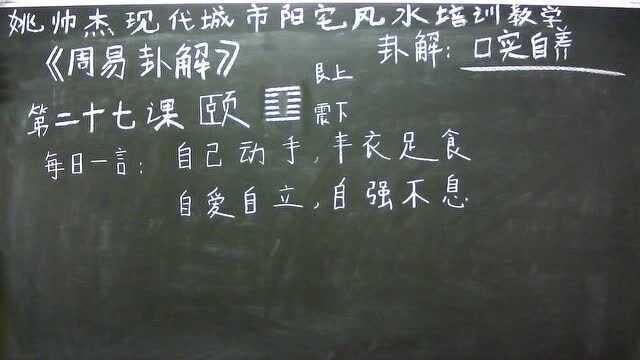 姚帅杰现代城市阳宅风水培训教学
《周易卦解》
卦解：口实自养
艮上
第二十七课 颐 ䷚ 震下
每日一言：自己动手，丰衣足食
自爱自立，自强不息